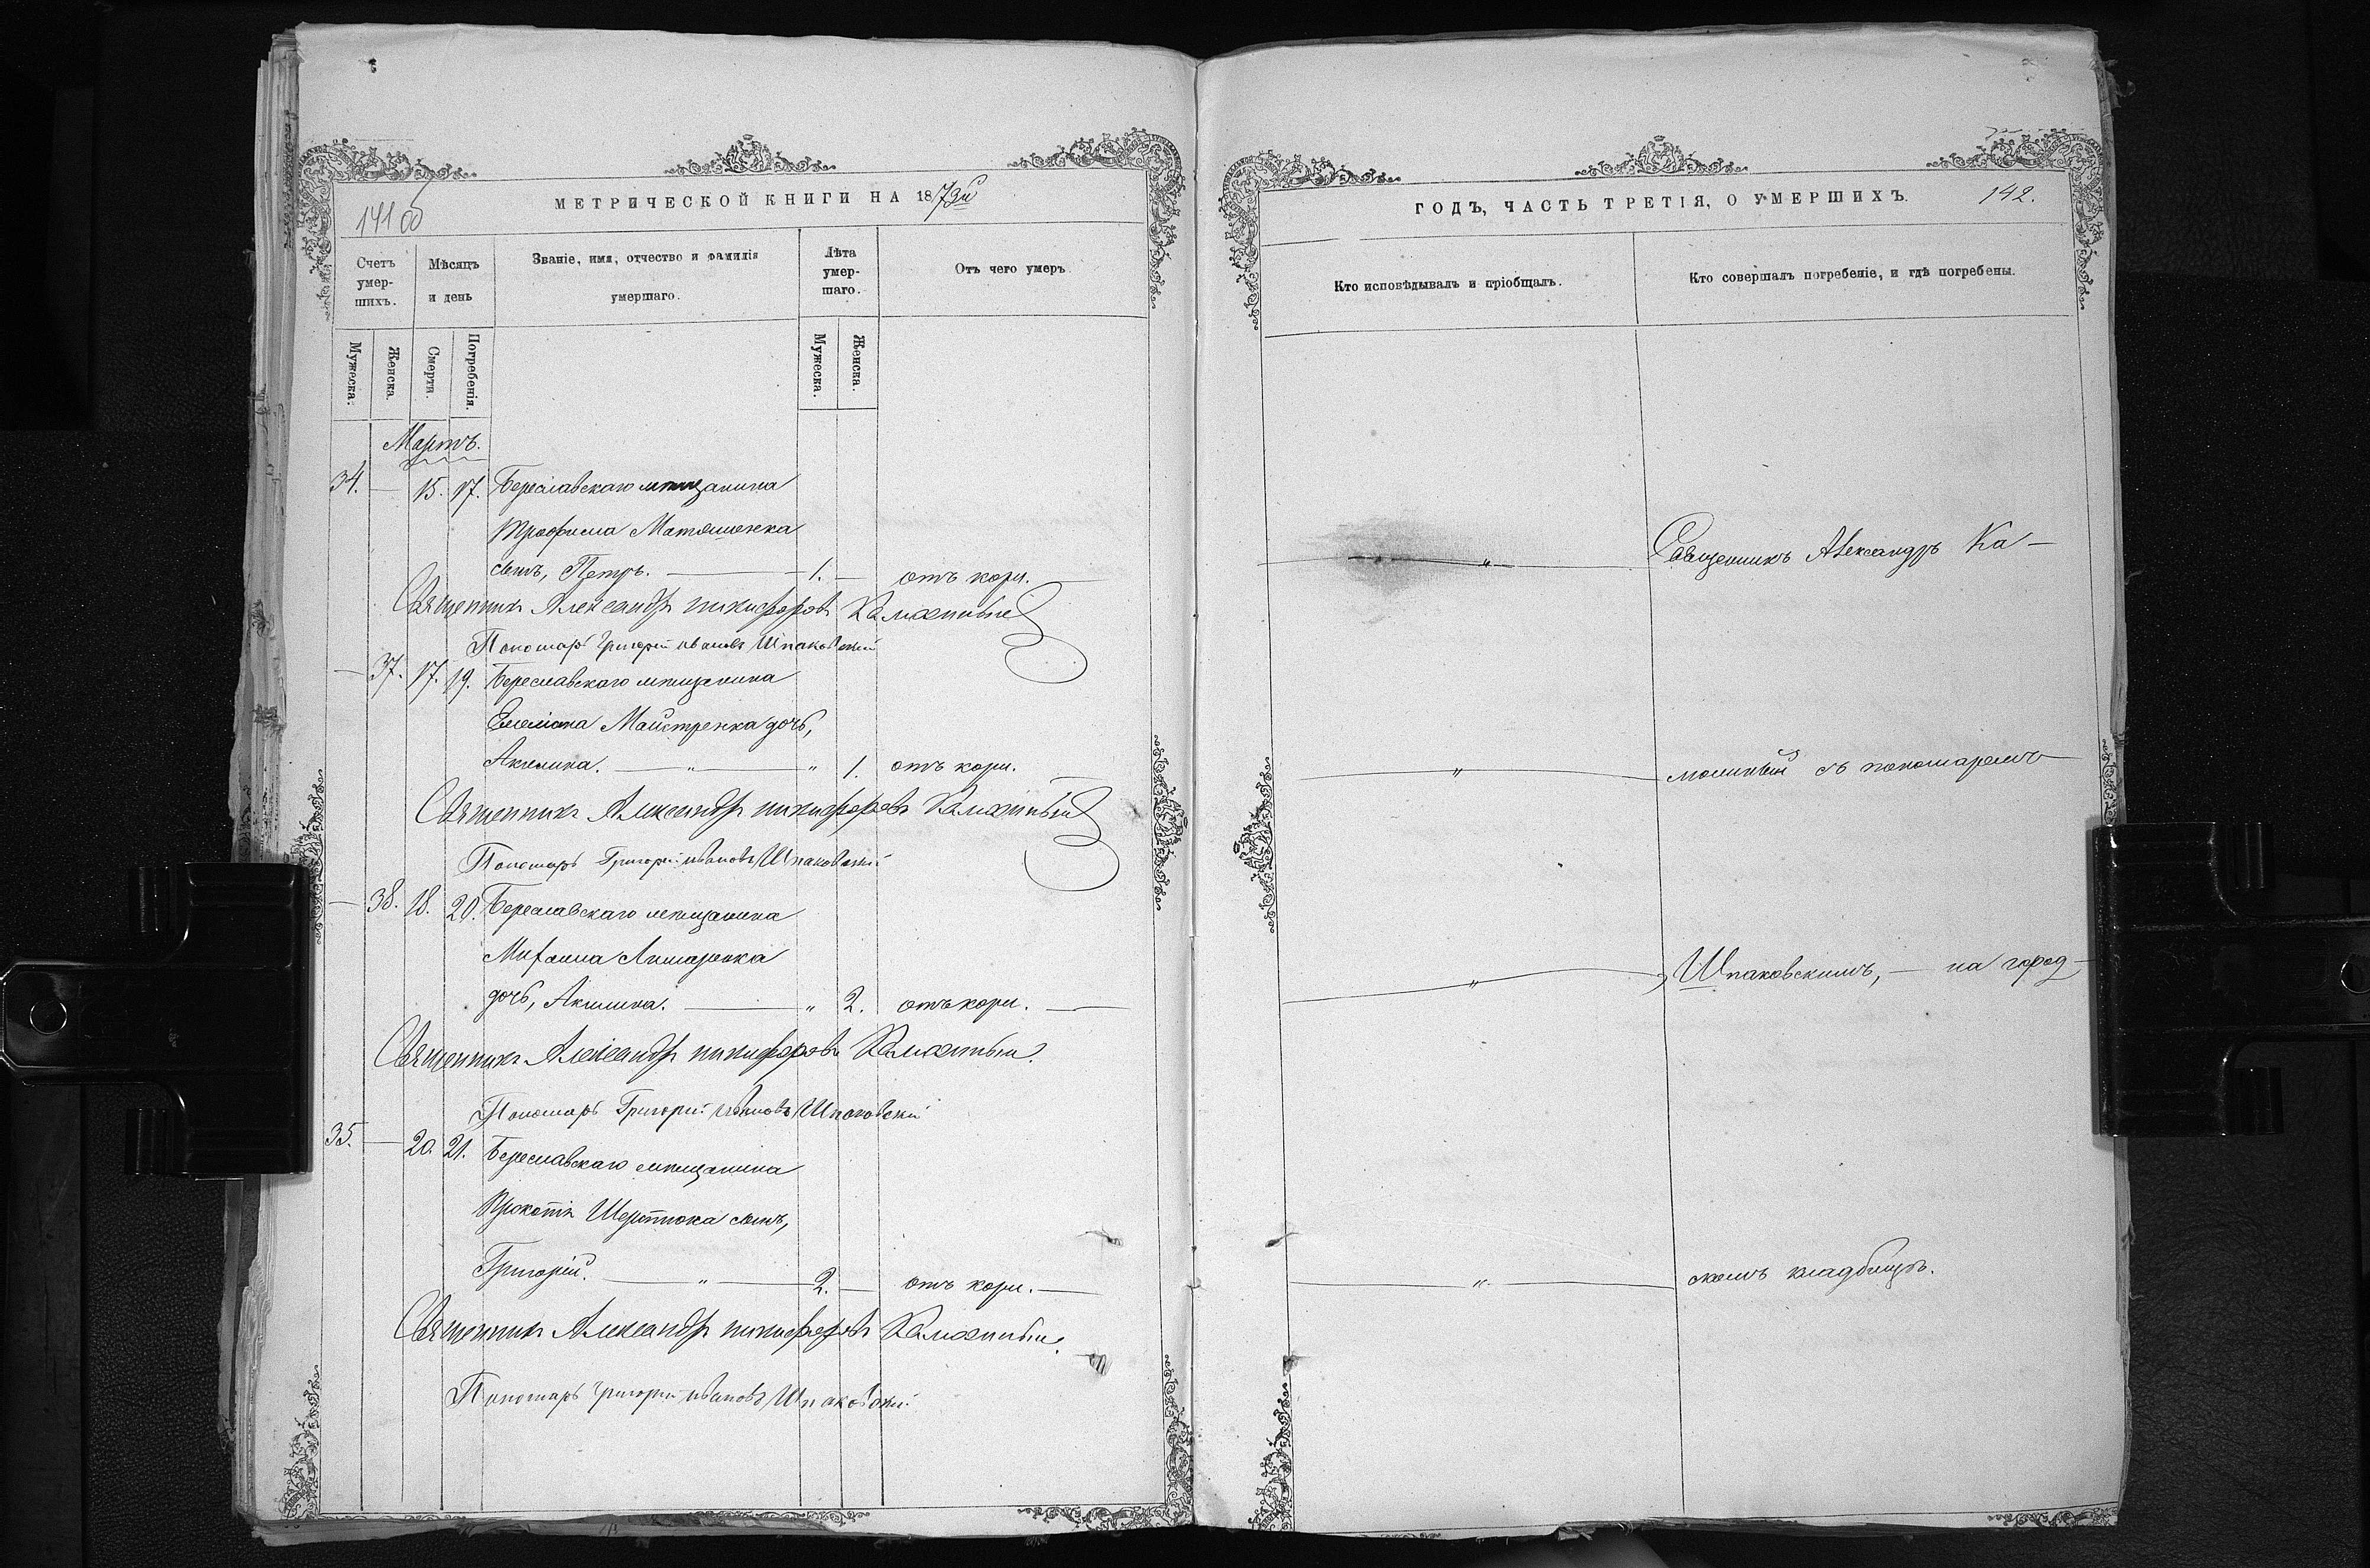 141 об
МЕТРИЧЕСКОЙ КНИГИ НА 1873й
Счетъ умер-шихъ.
Мѣсяцъ и день
Званіе, имя, отчество и фамилія умершаго.
Лѣта умер-шаго.
Отъ чего умеръ
Мужеска.
Женска.
Смерти.
Погребенія.
Мужеска.
Женска.
Мартъ.
34. — 15. 17. Береславскаго мѣщанина
Трофима Матяшенка
сынъ, Петръ. — 1. — отъ кори.
Священникъ Александръ Никифоровъ
Пономарь Григорій Ивановъ Шпаковскій
— 37. 17. 19. Береславскаго мѣщанина
Емеліана Майстренка дочь,
Акилина. — „ — „ 1. отъ кори.
Священникъ Александръ Никифоровъ
Пономарь Григорій Ивановъ Шпаковскій
— 38. 18. 20. Береславскаго мѣщанина
Михаила
дочь, Акилина. — „ 2. отъ кори. —
Священникъ Александръ Никифоровъ
Пономарь Григорій Ивановъ Шпаковскій
35. — 20. 21. Береславскаго мѣщанина
сынъ,
Григорій. — „ — 2. — отъ кори. —
Священникъ Александръ Никифоровъ
Пономарь Григорій Ивановъ Шпаковскій
ГОДЪ, ЧАСТЬ ТРЕТІЯ, О УМЕРШИХЪ.
142.
Кто исповѣдывалъ и пріобщалъ.
Кто совершалъ погребеніе, и гдѣ погребены.
— „ — Священникъ Александръ Ка-
— „ — съ пономаремъ
— „ — Шпаковскимъ, — на город-
— „ — скомъ кладбищѣ.